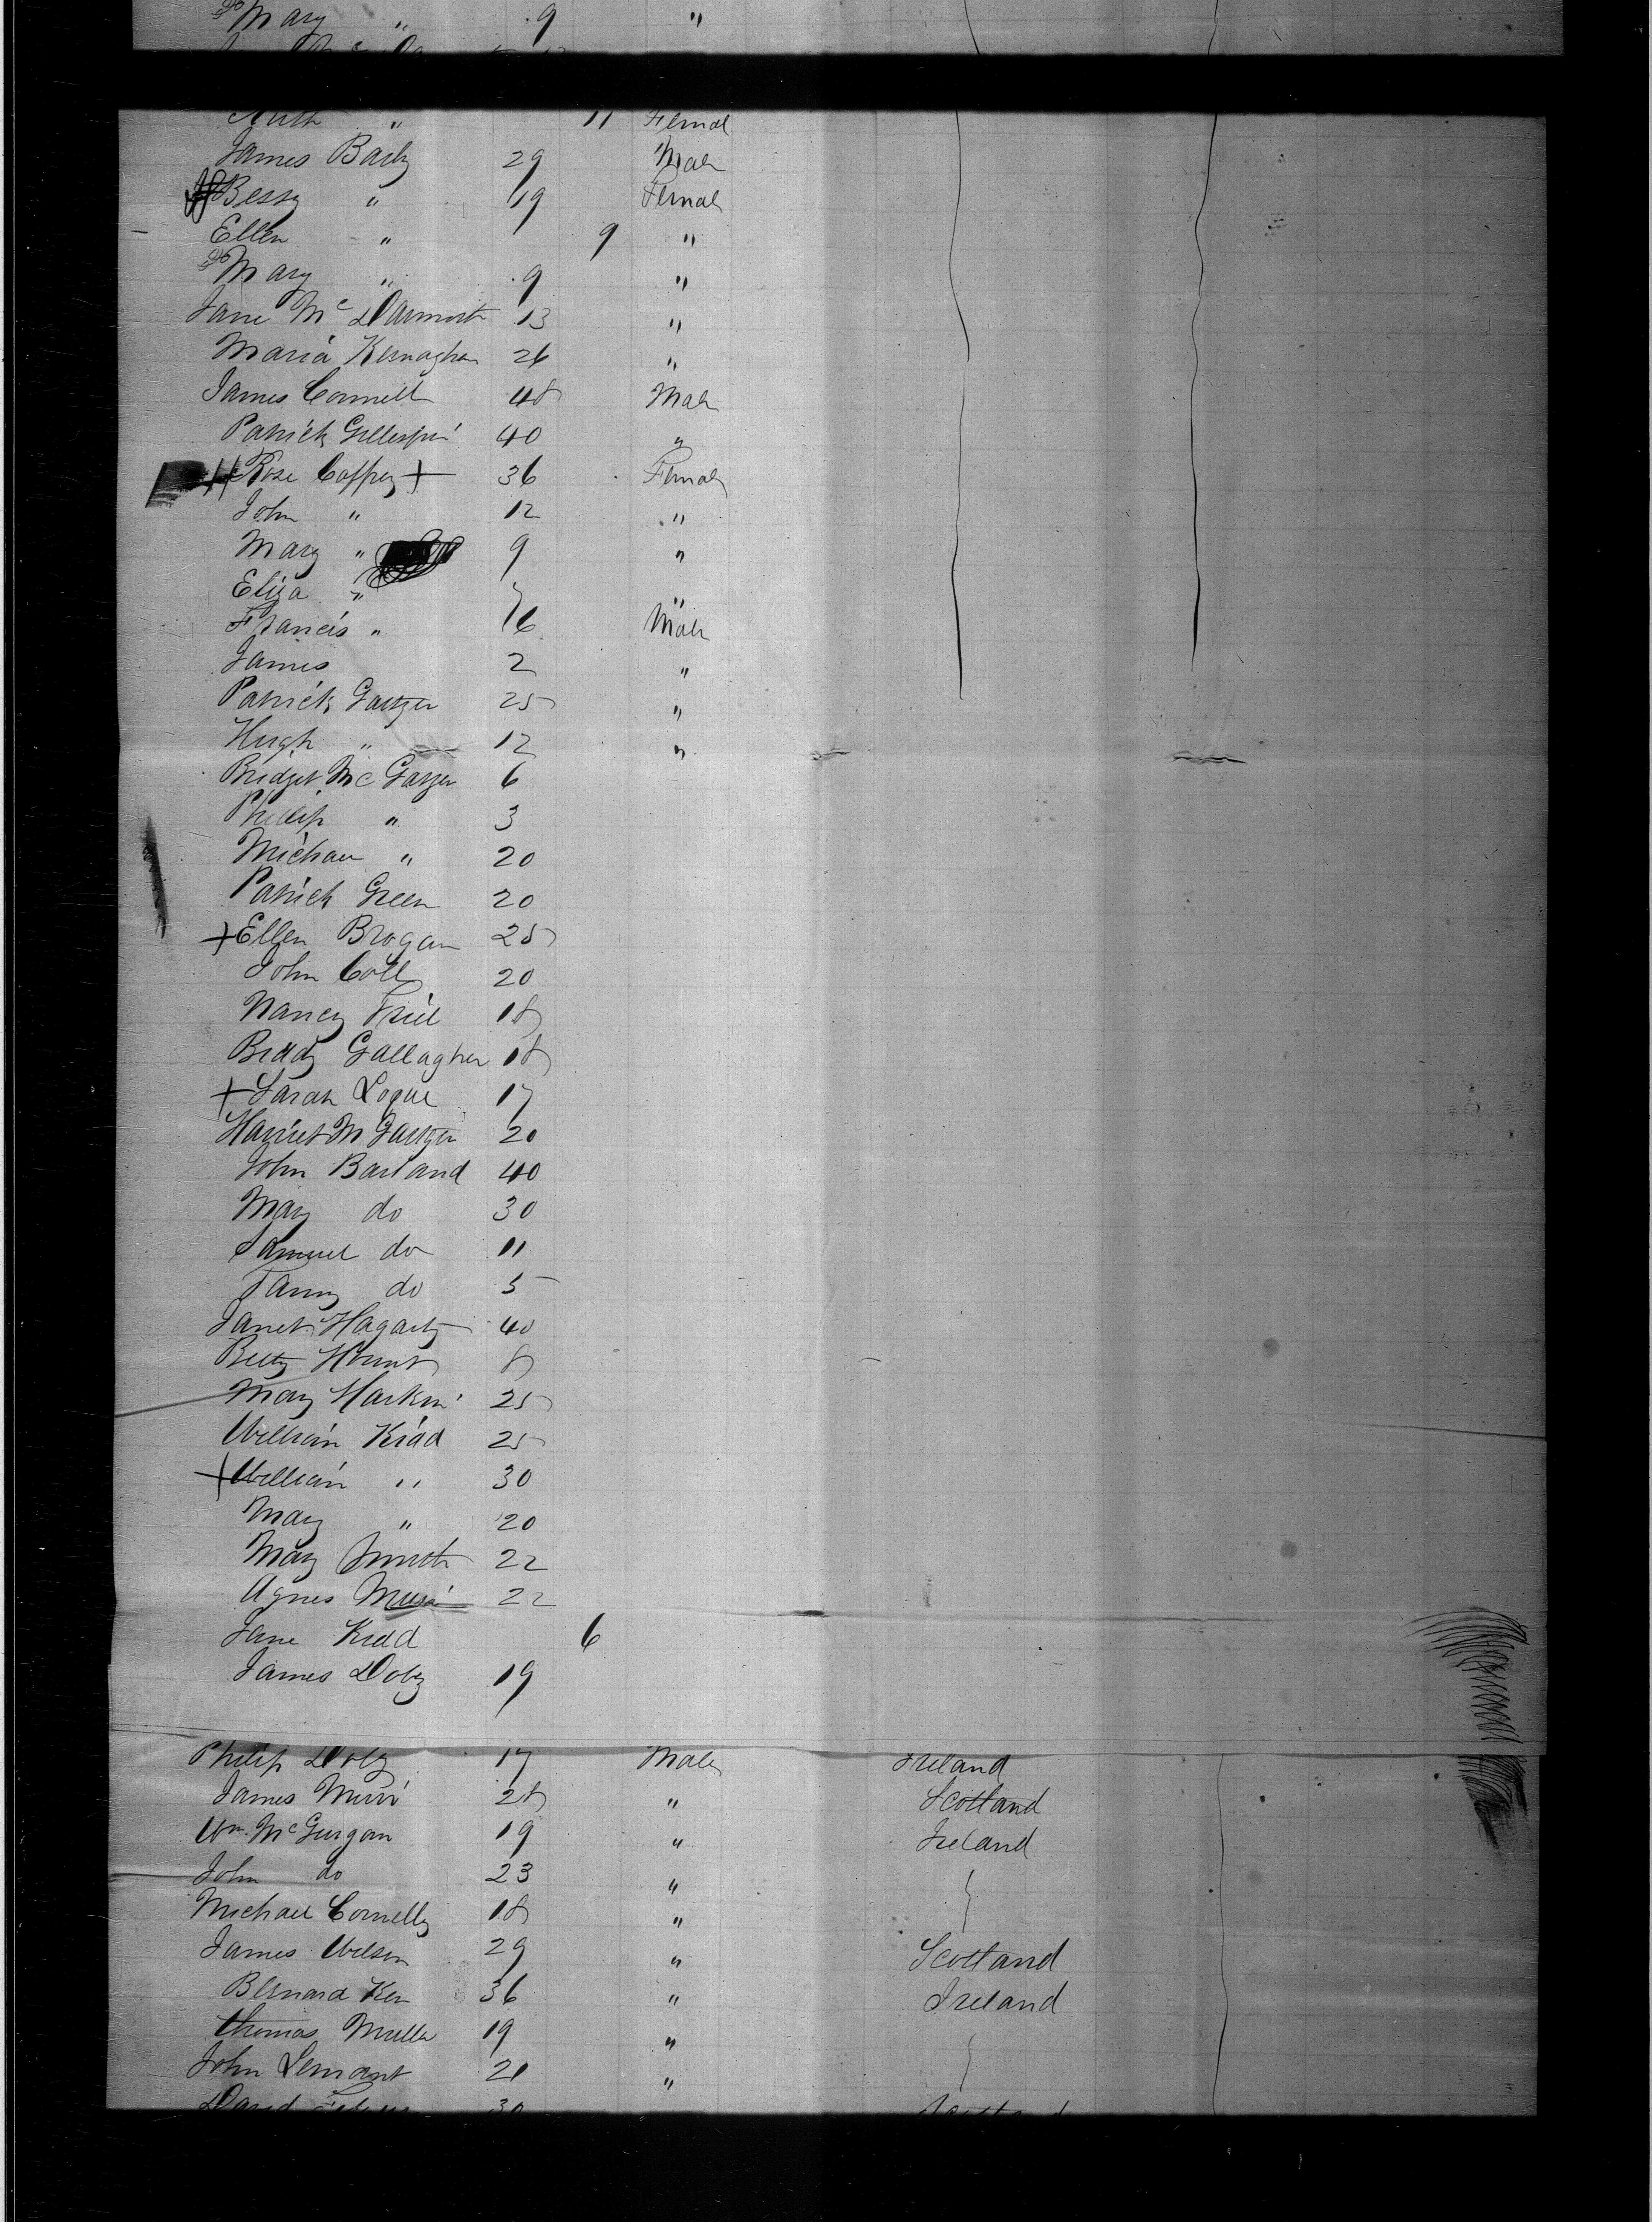 Mary " 9 "
Ruth " 11 Femal
James Baily 29 Male
Bessy " 19 Female
Ellen " 9 "
do Mary " 9 "
Jane Mc Darmort 13 "
Maria Kernaghan 26 "
James Connell 48 Male
Patrick Gillespie 40 "
Rose Caffrey + 36 Female
John " 12 "
Mary " 9 "
Eliza " 7 "
Francis " 6 Male
James 2 "
Patrick 25 "
Hugh " 12 "
Bridget Mc 6
Philip " 3
Michael " 20
Patrick Green 20
+ Ellen Brogan 25
John Coll 20
Nancy Friel 18
Biddy Gallagher 18
+ Sarah Logue 17
Harriet M 20
John Barland 40
Mary do 30
Samuel do 11
Fanny do 5
Janet Hagarty 40
Betty Hunt 8
Mary Harkin 25
William Kidd 25
+ William " 30
Mary " 20
Mary Smith 22
Agnes Muir 22
Jane Kidd 6
James Doby 19
Philip Doby 17 Male Ireland
James Muir 28 " Scotland
Wm. McGurgan 19 " Ireland
John do 23 "
Michael Connelly 18 "
James Wilson 29 " Scotland
Bernard Ker 36 " Ireland
Thomas Muller 19 "
John Lemant 21 "
David 30 Scotland